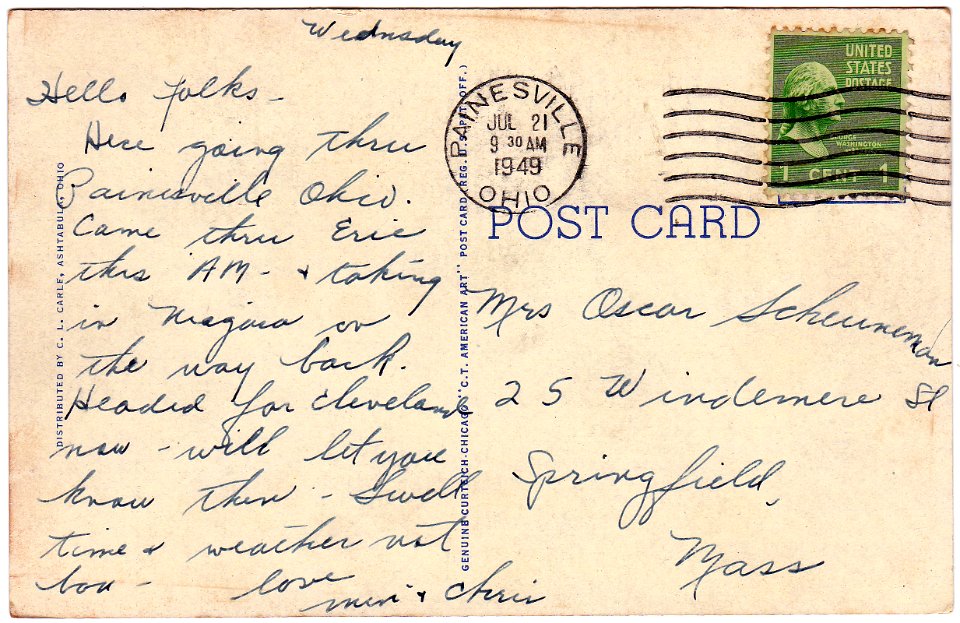 Wednsday
Hello folks -
Here going thru
Painesville Ohio.
Came thru Erie
this AM - & taking
in Niagara on
the way back.
Headed for Cleveland
now - will let you
know then - Swell
time & weather not
bad - love
& Chris
DISTRIBUTED BY C. L. CARLE, ASHTABULA, OHIO
GENUINE CURTEICH-CHICAGO "C.T. AMERICAN ART" POST CARD (REG. U.S. PAT. OFF.)
PAINESVILLE
JUL 21
9 30 AM
1949
OHIO
UNITED
STATES
POSTAGE
GEORGE
WASHINGTON
1 CENT 1
POST CARD
Mrs Oscar Scheuneman
25 Windemere St
Springfield,
Mass